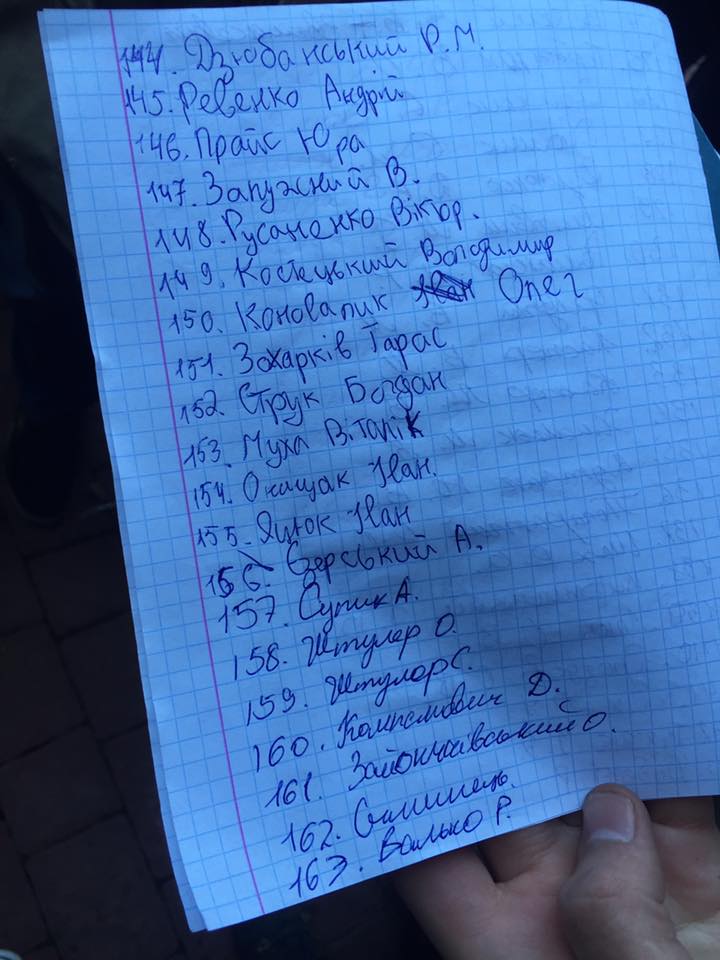 144. Дзюбанський Р.М.
145. Ревенко Андрій
146. Прайс Юра
147. Запужний В.
148. Русаненко Віктор.
149. Костецький Володимир
150. Коновалик Олег
151. Захарків Тарас
152. Струк Богдан
153. Муха Віталік
154. Онищак Іван.
155. Яцюк Іван
156. Єзерський А.
157. Супик А.
158. Штулер О.
159. Штулер С.
160. Д.
161. О.
162.
163. Валько Р.